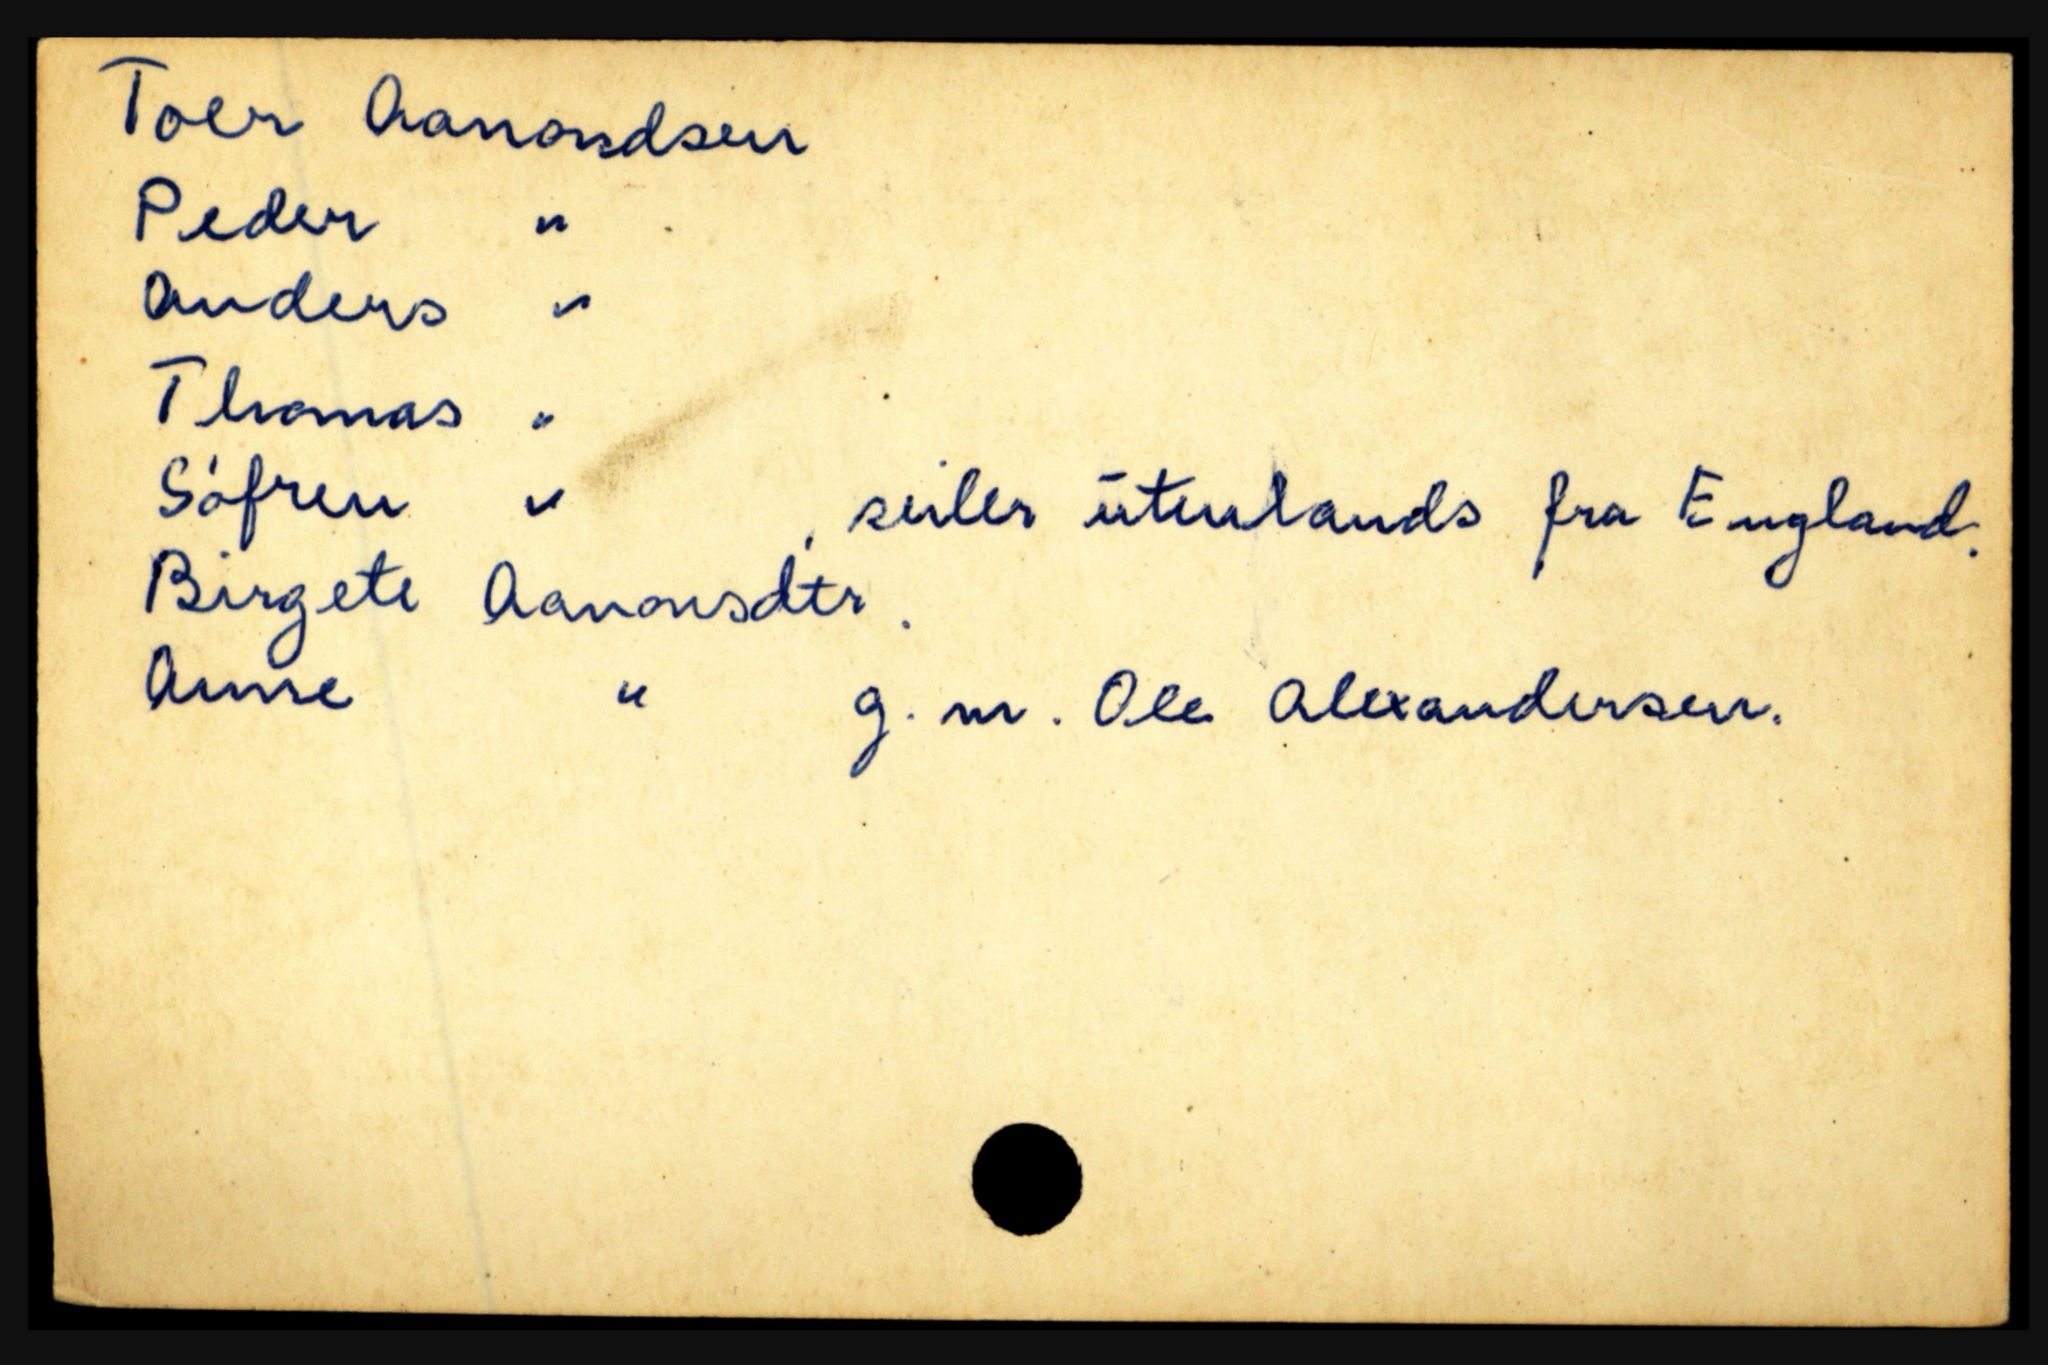 Toer Aanondsen
Peder "
Anders "
Thomas "
Söfren " , seiler utenlands fra England.
Birgete Aanonsdtr.
Anne " g. m. Ole Alexandersen.